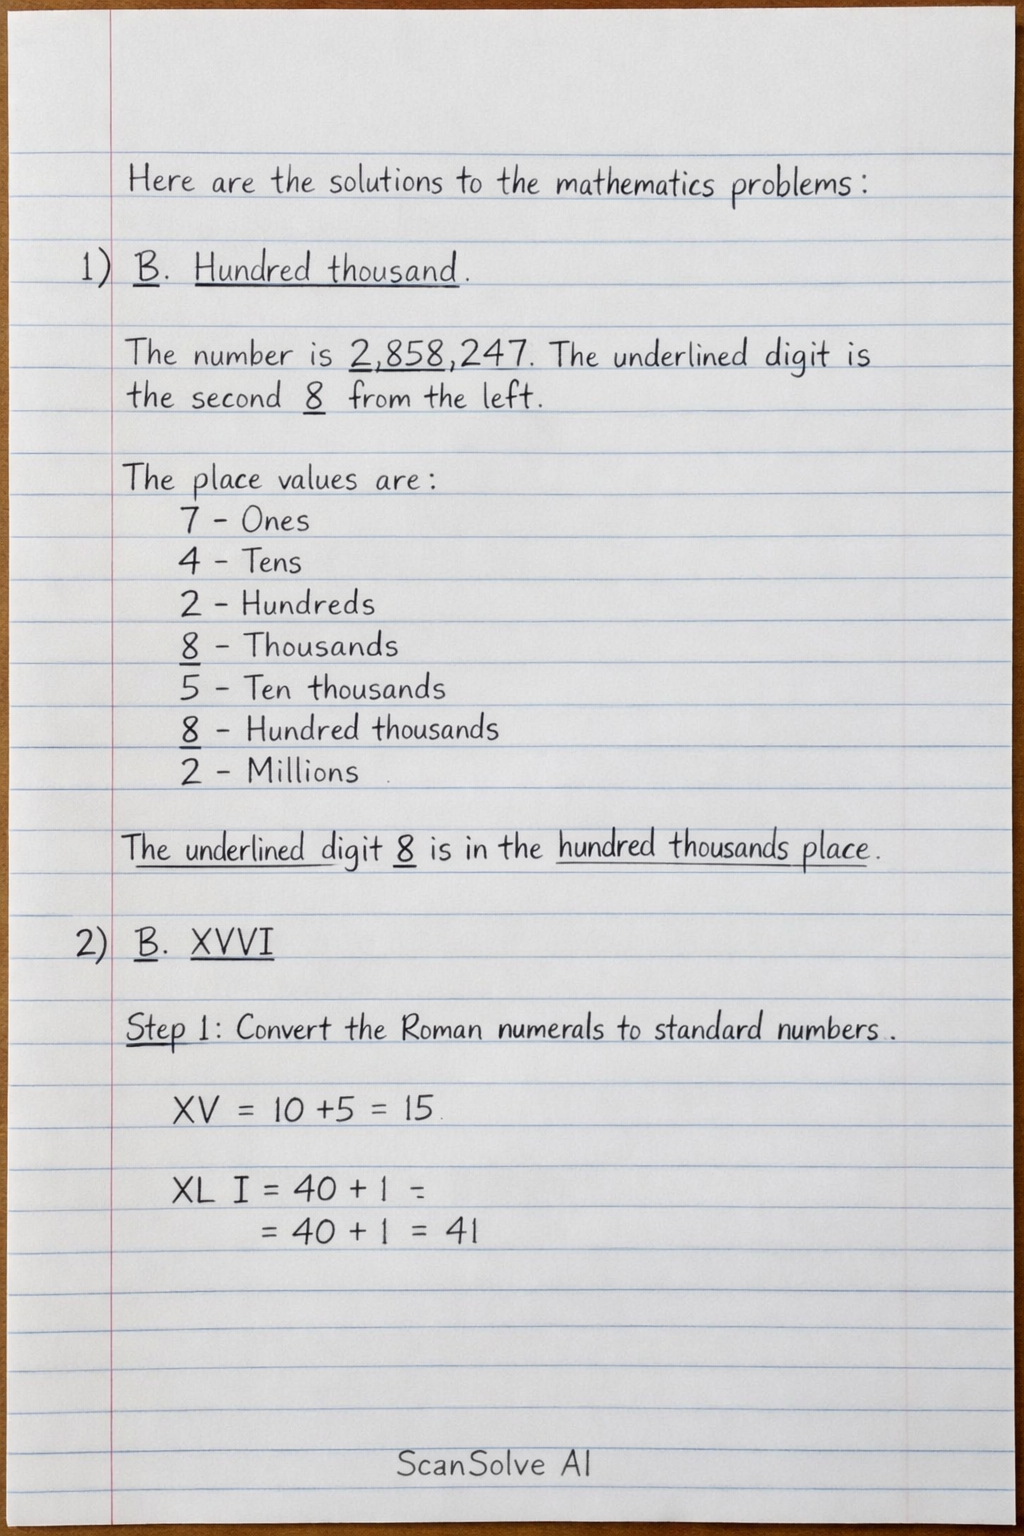 Here are the solutions to the mathematics problems:
1) B. Hundred thousand.
The number is 2,858,247. The underlined digit is
the second 8 from the left.
The place values are:
7 - Ones
4 - Tens
2 - Hundreds
8 - Thousands
5 - Ten thousands
8 - Hundred thousands
2 - Millions
The underlined digit 8 is in the hundred thousands place.
2) B. XVVI
Step 1: Convert the Roman numerals to standard numbers.
XV = 10 +5 = 15
XL I = 40 + 1 =
= 40 + 1 = 41
ScanSolve AI